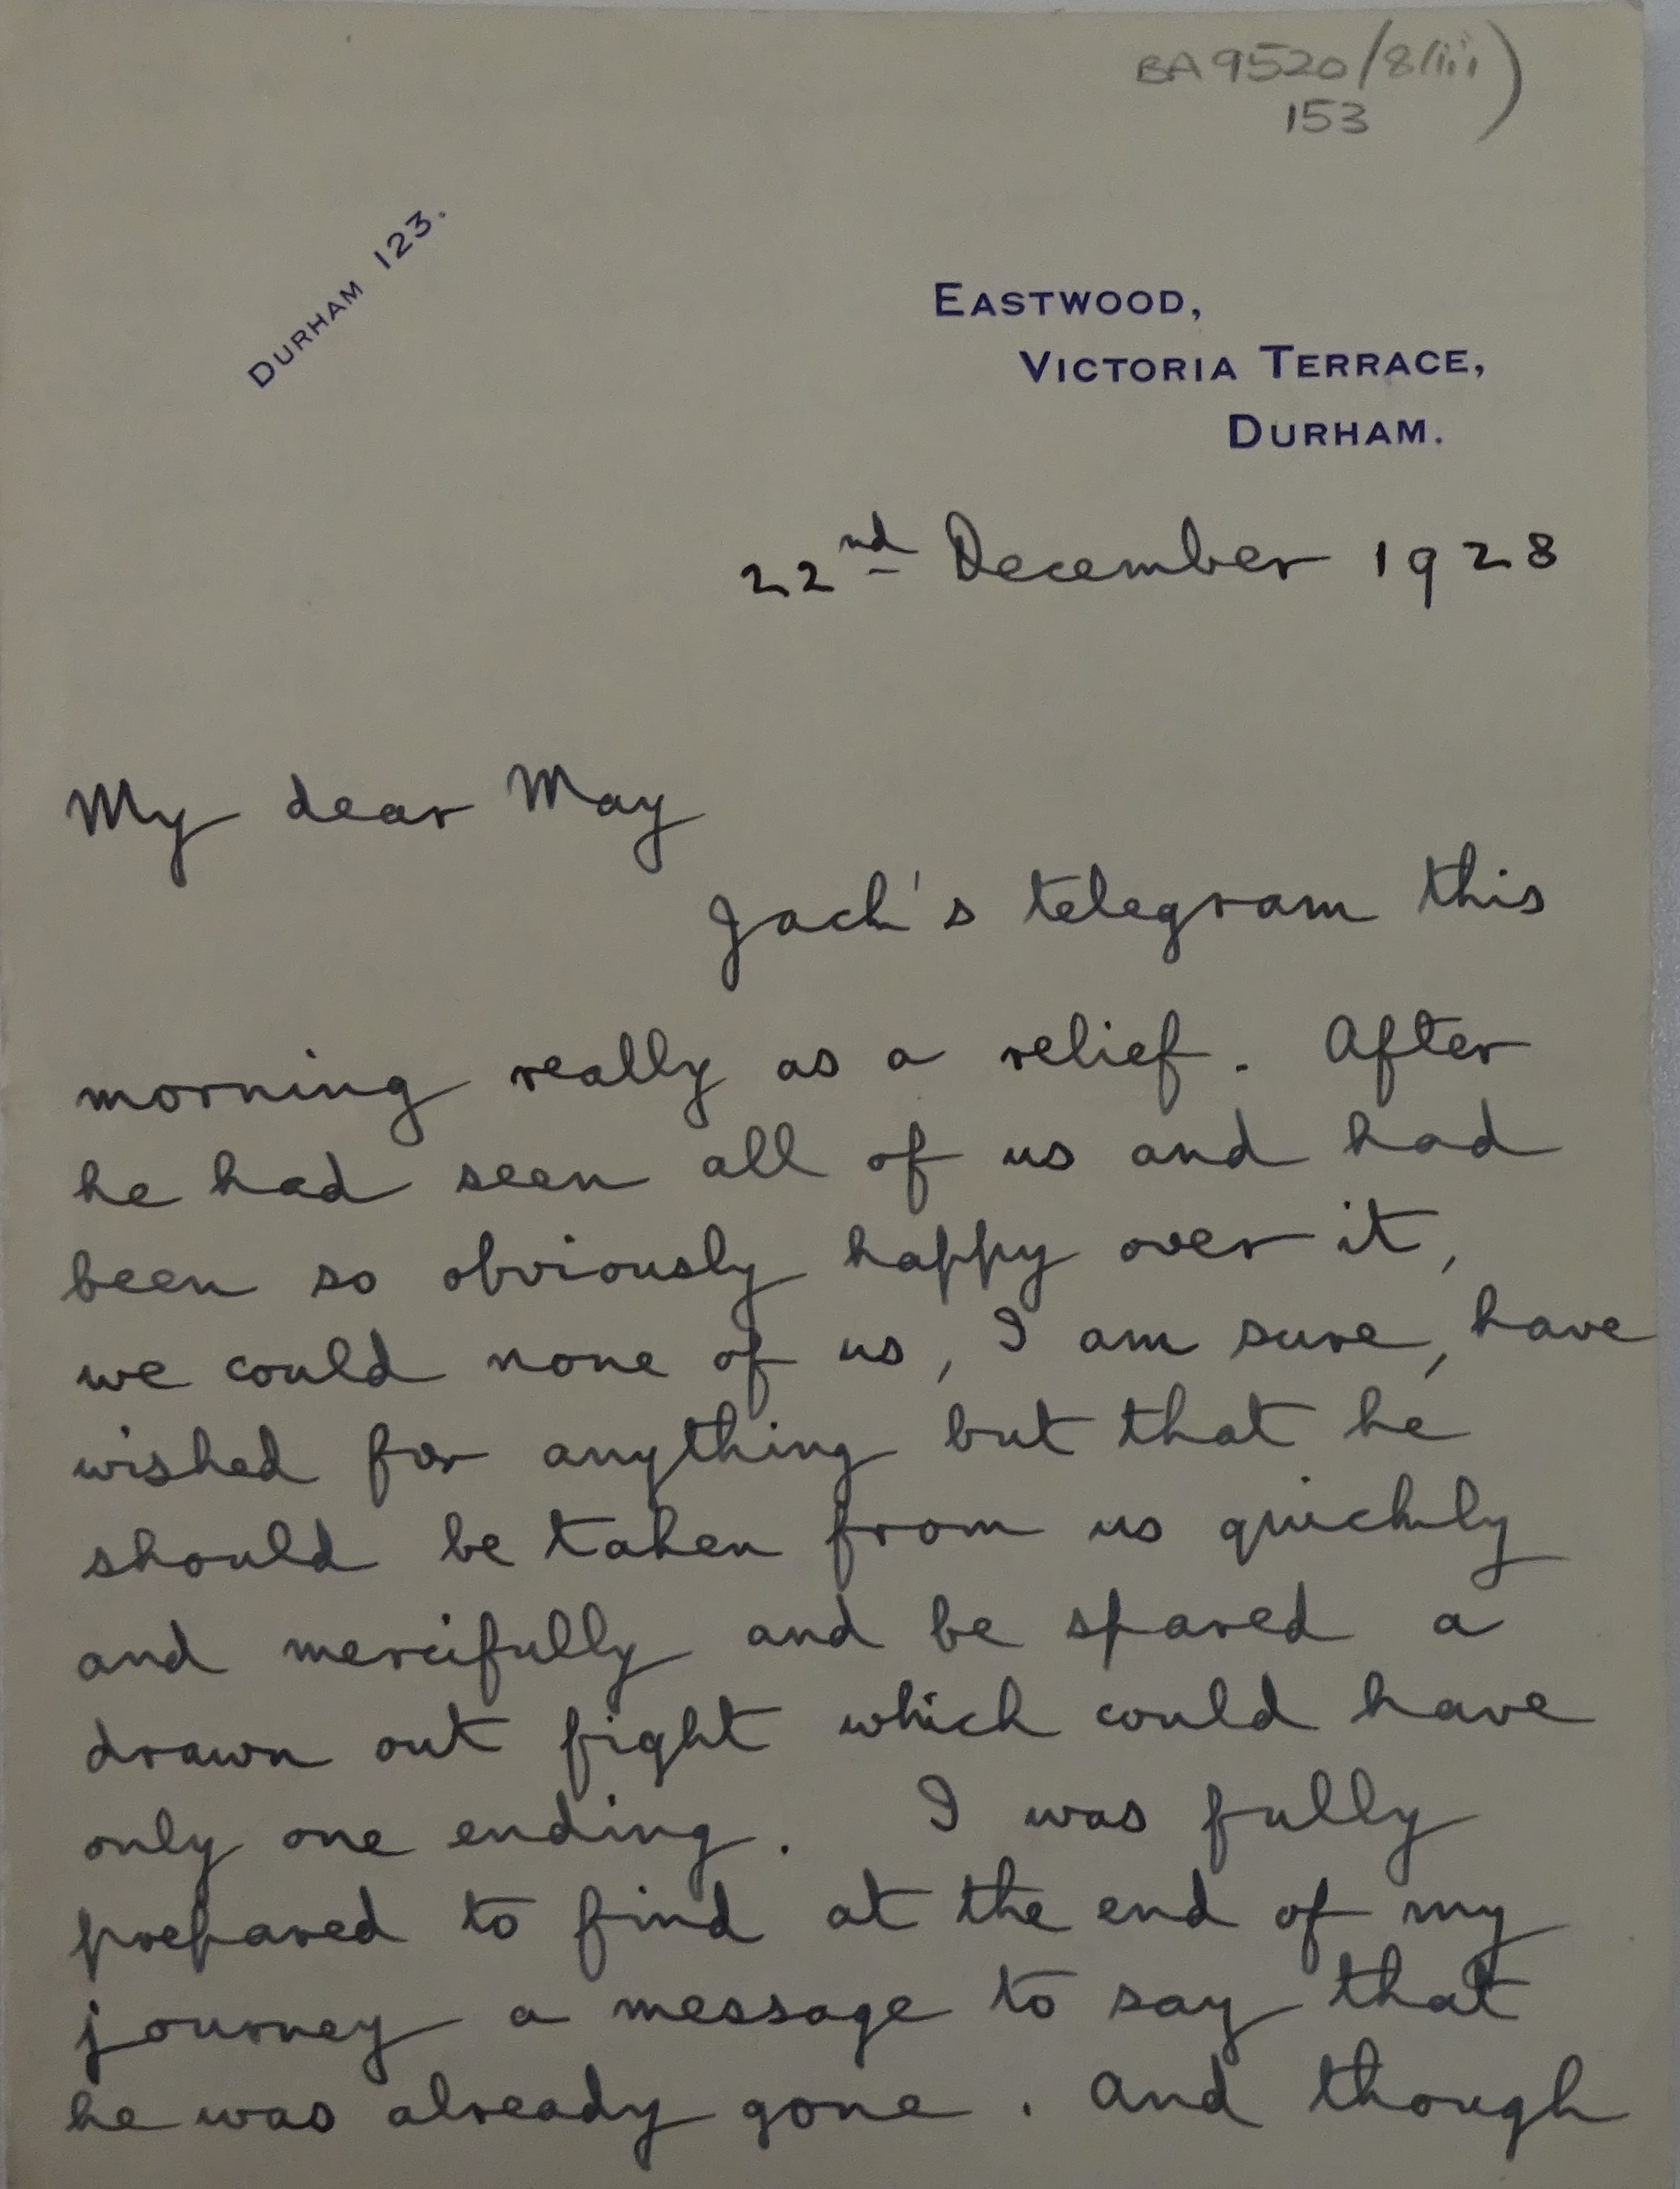 BA 9520/8(iii)
153
DURHAM 123.
EASTWOOD,
VICTORIA TERRACE,
DURHAM.
22nd December 1928
My dear May
Jack's telegram this
morning really as a relief. After
he had seen all of us and had
been so obviously happy over it,
we could none of us, I am sure, have
wished for anything but that he
should be taken from us quickly
and mercifully and be spared a
drawn out fight which could have
only one ending. I was fully
prepared to find at the end of my
journey a message to say that
he was already gone. And though